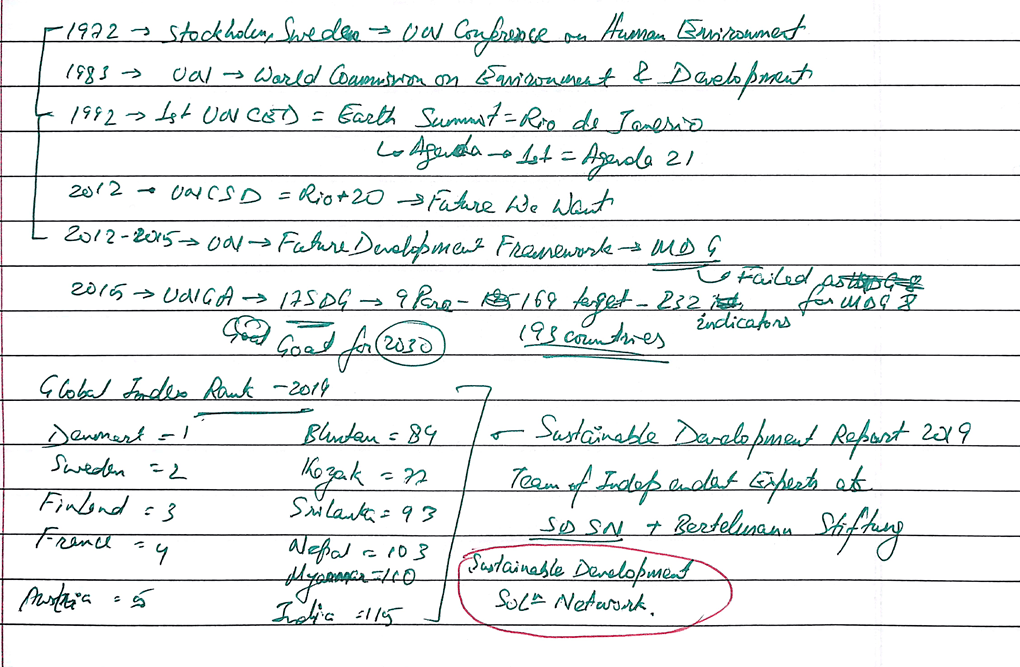 1972 → Stockholm, Sweden → UN Conference on Human Environment
1983 → UN → World Commission on Environment & Development
1992 → 1st UNCED = Earth Summit = Rio de Janerio
↳ Agenda → 1st = Agenda 21
2012 → UNCSD = Rio+20 → Future We Want
2012-2015 → UN → Future Development Framework → MDG
↳ Failed as
2015 → UNGA → 17SDG → 9 Para - 169 target - 232
for MDG 8
indicators
Goal for 2030
193 countries
Global Index Rank - 2019
Denmark = 1
Sweden = 2
Finland = 3
France = 4
Austria = 5
Bhutan = 84
Kozak = 77
Srilanka = 93
Nepal = 103
Myanmar = 110
India = 115
← Sustainable Development Report 2019
Team of Independent Experts at
SDSN + Bertelmann Stiftung
Sustainable Development
Solⁿ Network.